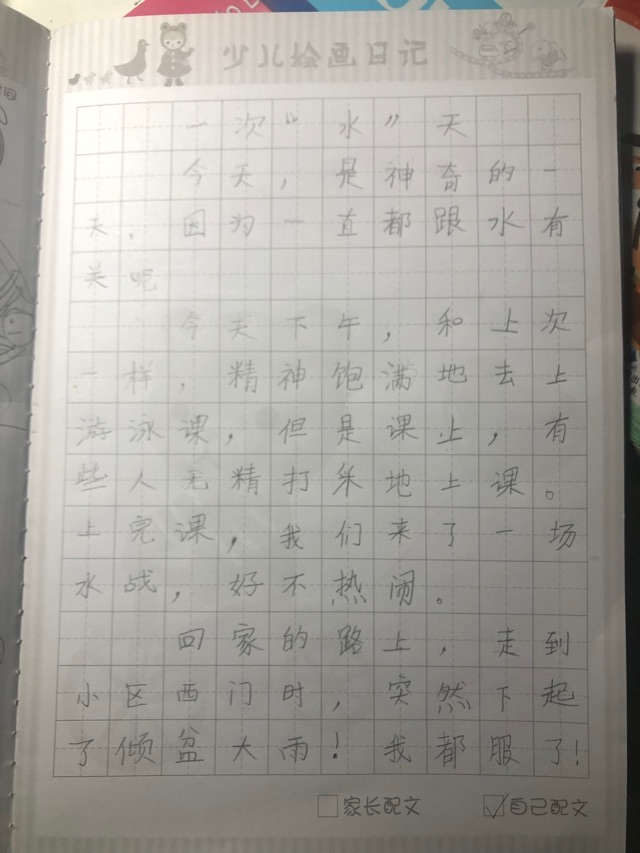 少儿绘画日记
一次“水”天
今天，是神奇的一
天，因为一直都跟水有
关呢
今天下午，和上次
一样，精神饱满地去上
游泳课，但是课上，有
些人无精打采地上课。
上完课，我们来了一场
水战，好不热闹。
回家的路上，走到
小区西门时，突然下起
了倾盆大雨！我都服了！
家长配文 自己配文